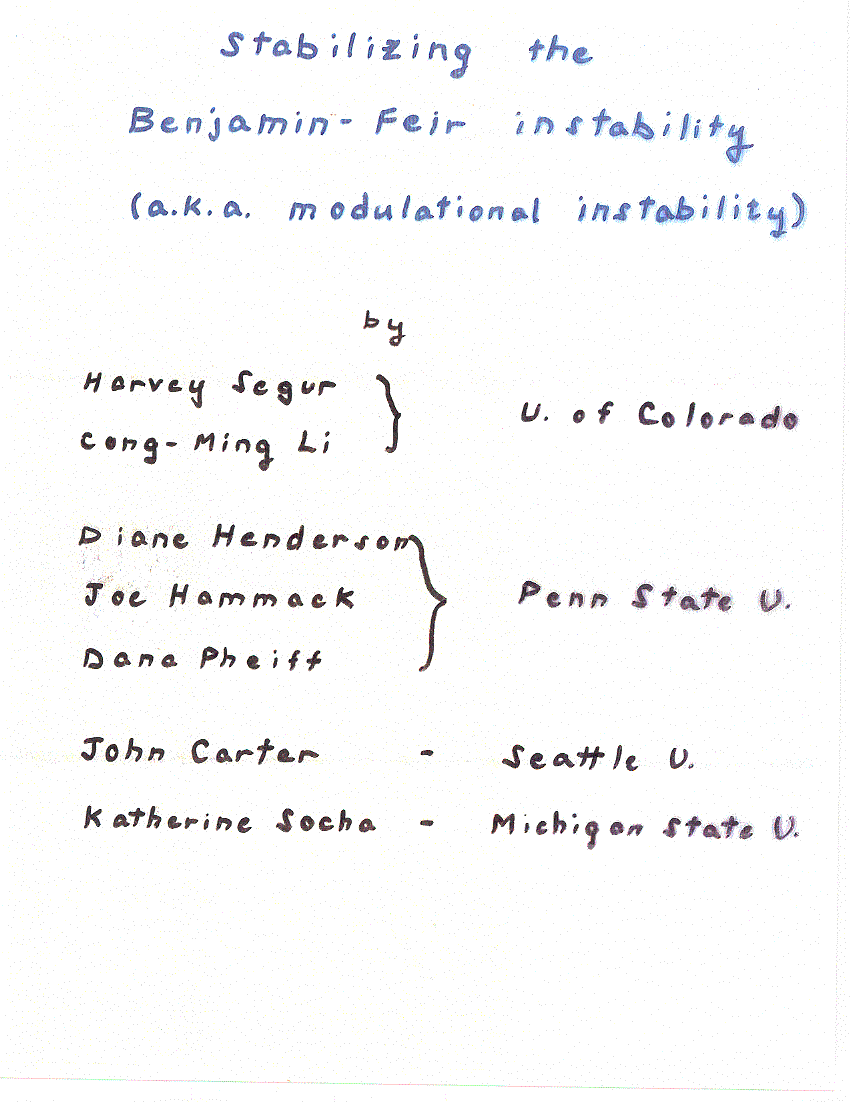 Stabilizing the
Benjamin-Feir instability
(a.k.a. modulational instability)
by
Harvey Segur
Cong-Ming Li
U. of Colorado
Diane Henderson
Joe Hammack
Dana Pheiff
Penn State U.
John Carter - Seattle U.
Katherine Socha - Michigan State U.